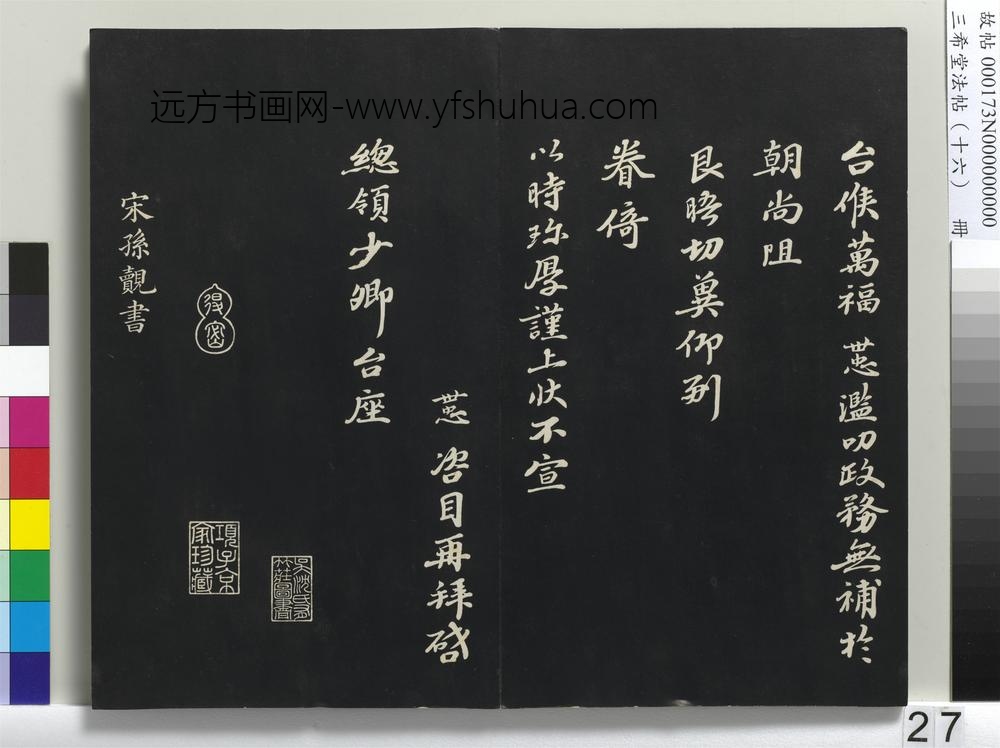 台候萬福 懃濫叨政務無補於
朝尚阻
良晤切冀仰副
眷倚
以時珎厚謹上狀不宣
咨目再拜啓
總領少卿台座
宋孫覿書
項子京家珍藏
远方书画网-www.yfshuhua.com
故帖 000173N000000000
三希堂法帖(十六) 冊
27